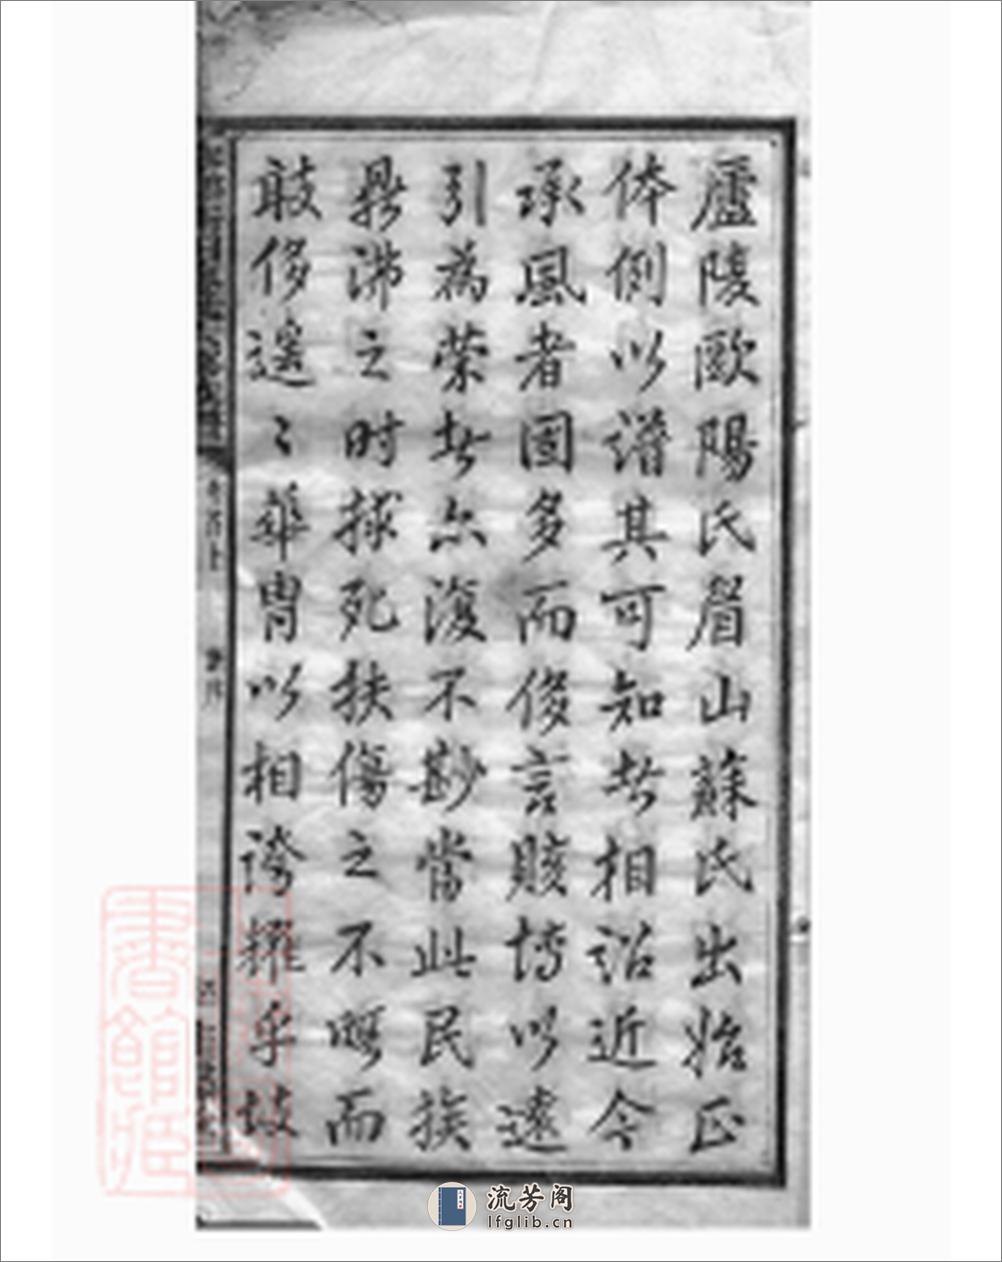 廬陵歐陽氏眉山蘇氏出始正
体例以譜其可知者相沿近今
承風者固多而侈言賅博以遠
引為榮者亦復不尠當此民族
鼎沸之时捄死扶傷之不暇而
敢侈遥〻華胄以相誇耀乎故
流芳阁
lfglib.cn